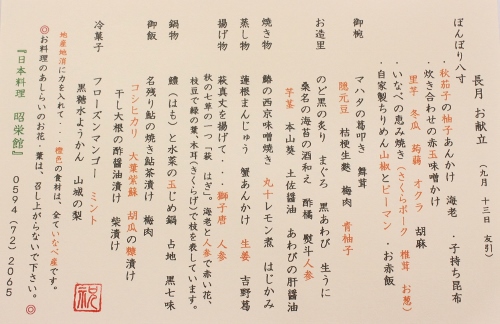 長月 お献立 (九月 十三日 友引)
ぼんぼり八寸
・秋茄子の柚子あんかけ 海老 ・子持ち昆布
・炊き合わせの赤玉味噌かけ
里芋 冬瓜 蒟蒻 オクラ 胡麻
・いなべの恵み焼き(さくらポーク 椎茸 お葱)
・自家製ちりめん山椒とピーマン ・お赤飯
御椀
マハタの葛叩き 舞茸
隠元豆 桔梗生麩 梅肉 青柚子
お造里
のど黒の炙り まぐろ 黒あわび 生うに
桑名の海苔の酒和え 酢橘 熨斗人参
芋茎 本山葵 土佐醤油 あわびの肝醤油
焼き物
鰆の西京味噌焼き 丸十レモン煮 はじかみ
蒸し物
蓮根まんじゅう 蟹あんかけ 生姜 吉野葛
揚げ物
萩真丈を揚げて・・・獅子唐 人参
秋の七草の一つ「萩 はぎ」。海老と人参で赤い花、
枝豆で緑の葉、木耳(きくらげ)で枝を表しています。
鍋物
鱧(はも)と水菜の玉じめ鍋 占地 黒七味
御飯
名残り鮎の焼き鮎茶漬け 梅肉
コシヒカリ 大葉紫蘇 胡瓜の糠漬け
干し大根の酢醤油漬け 柴漬け
冷菓子
フローズンマンゴー ミント
黒糖水ようかん 山城の梨
地産地消に力を入れて・・・橙色の食材は、全ていなべ産です。
◎お料理のあしらいのお花・葉は、召し上がらないで下さい。◎
『日本料理 昭栄館』 0594(72)2065
祝